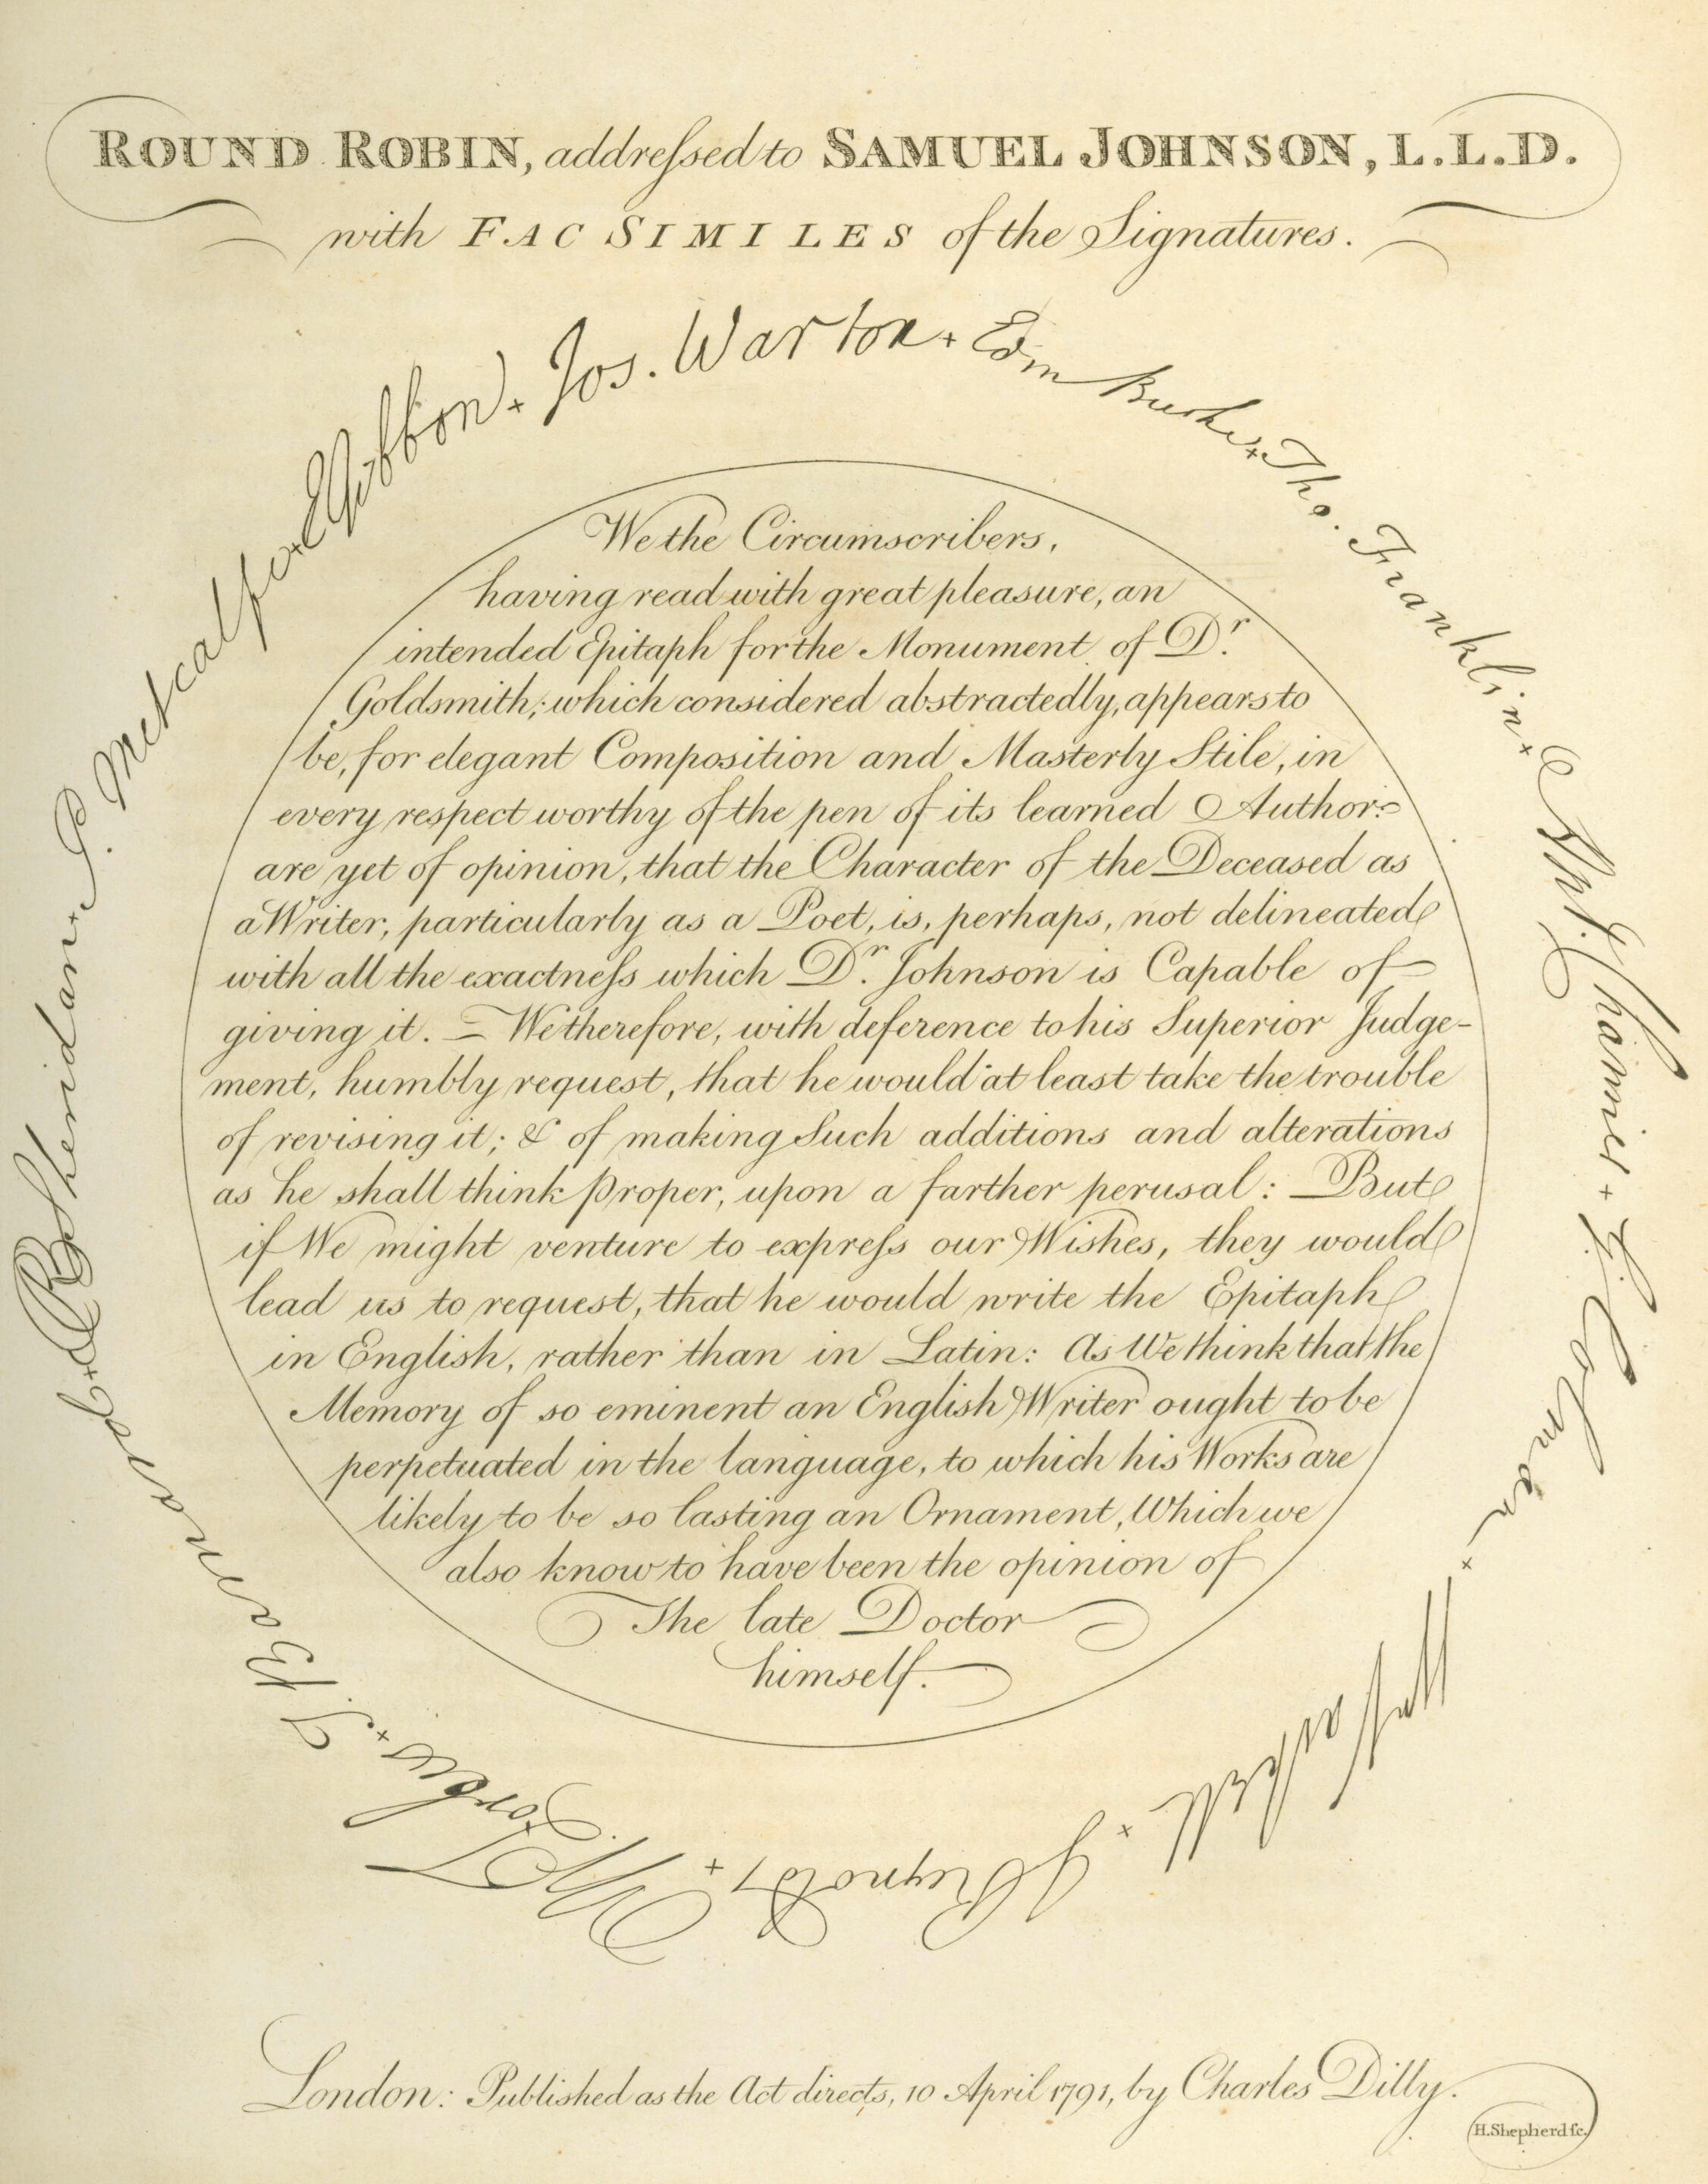 ROUND ROBIN, addreſsed to SAMUEL JOHNSON, L.L.D.
with FAC SIMILES of the Signatures.
EGibbon + Jos. Warton + Edm Burke + Tho. Franklin + Ant. Chamier + G. Colman +
We the Circumscribers,
having read with great pleasure, an
intended Epitaph for the Monument of Dr.
Goldsmith; which considered abstractedly, appears to
be, for elegant Composition and Masterly Stile, in
every respect worthy of the pen of its learned Author:
are yet of opinion, that the Character of the Deceased as
a Writer, particularly as a Poet, is, perhaps, not delineated
with all the exactneſs which Dr. Johnson is Capable of
giving it. — We therefore, with deference to his Superior Judge-
ment, humbly request, that he would at least take the trouble
of revising it; & of making Such additions and alterations
as he shall think proper, upon a farther perusal: But
if We might venture to expreſs our Wishes, they would
lead us to request, that he would write the Epitaph
in English, rather than in Latin: As We think that the
Memory of so eminent an English Writer ought to be
perpetuated in the language, to which his Works are
likely to be so lasting an Ornament, Which we
also know to have been the opinion of
The late Doctor
himself.
J Reynolds +
W. Forbes +
T. Barnard +
RB Sheridan +
P. Metcalfe +
London: Published as the Act directs, 10 April 1791, by Charles Dilly.
H. Shepherd sc.